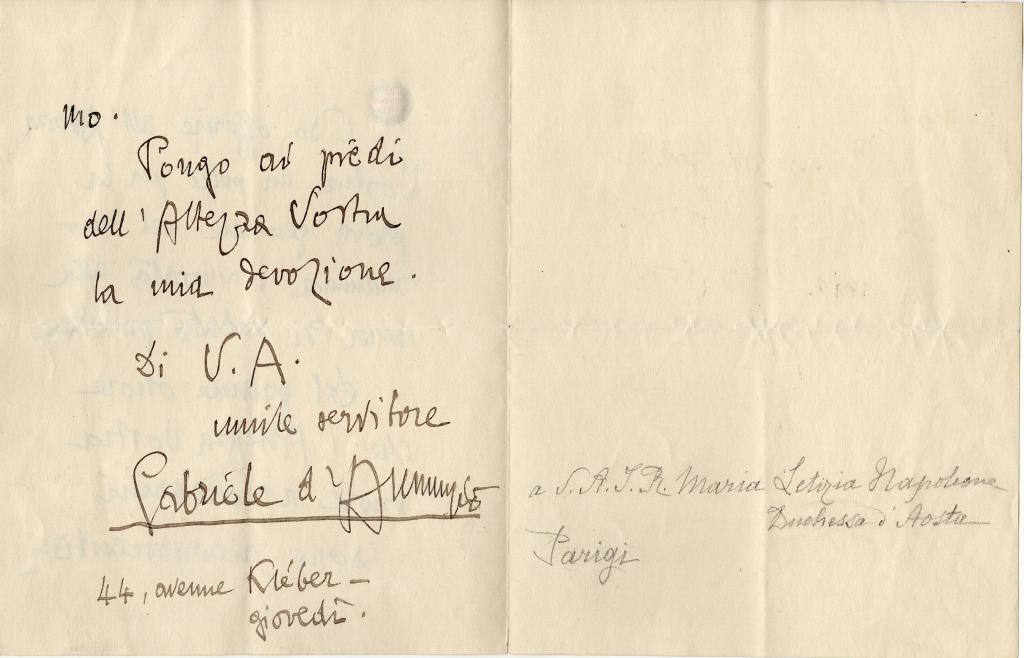 mo.
Pongo ai piedi
dell'Altezza Vostra
la mia devozione.
Di V. A.
umile servitore
Gabriele d'Annunzio
44, avenue Kléber –
giovedì.
a S. A. I. R. Maria Letizia Napoleone
Duchessa d'Aosta
Parigi